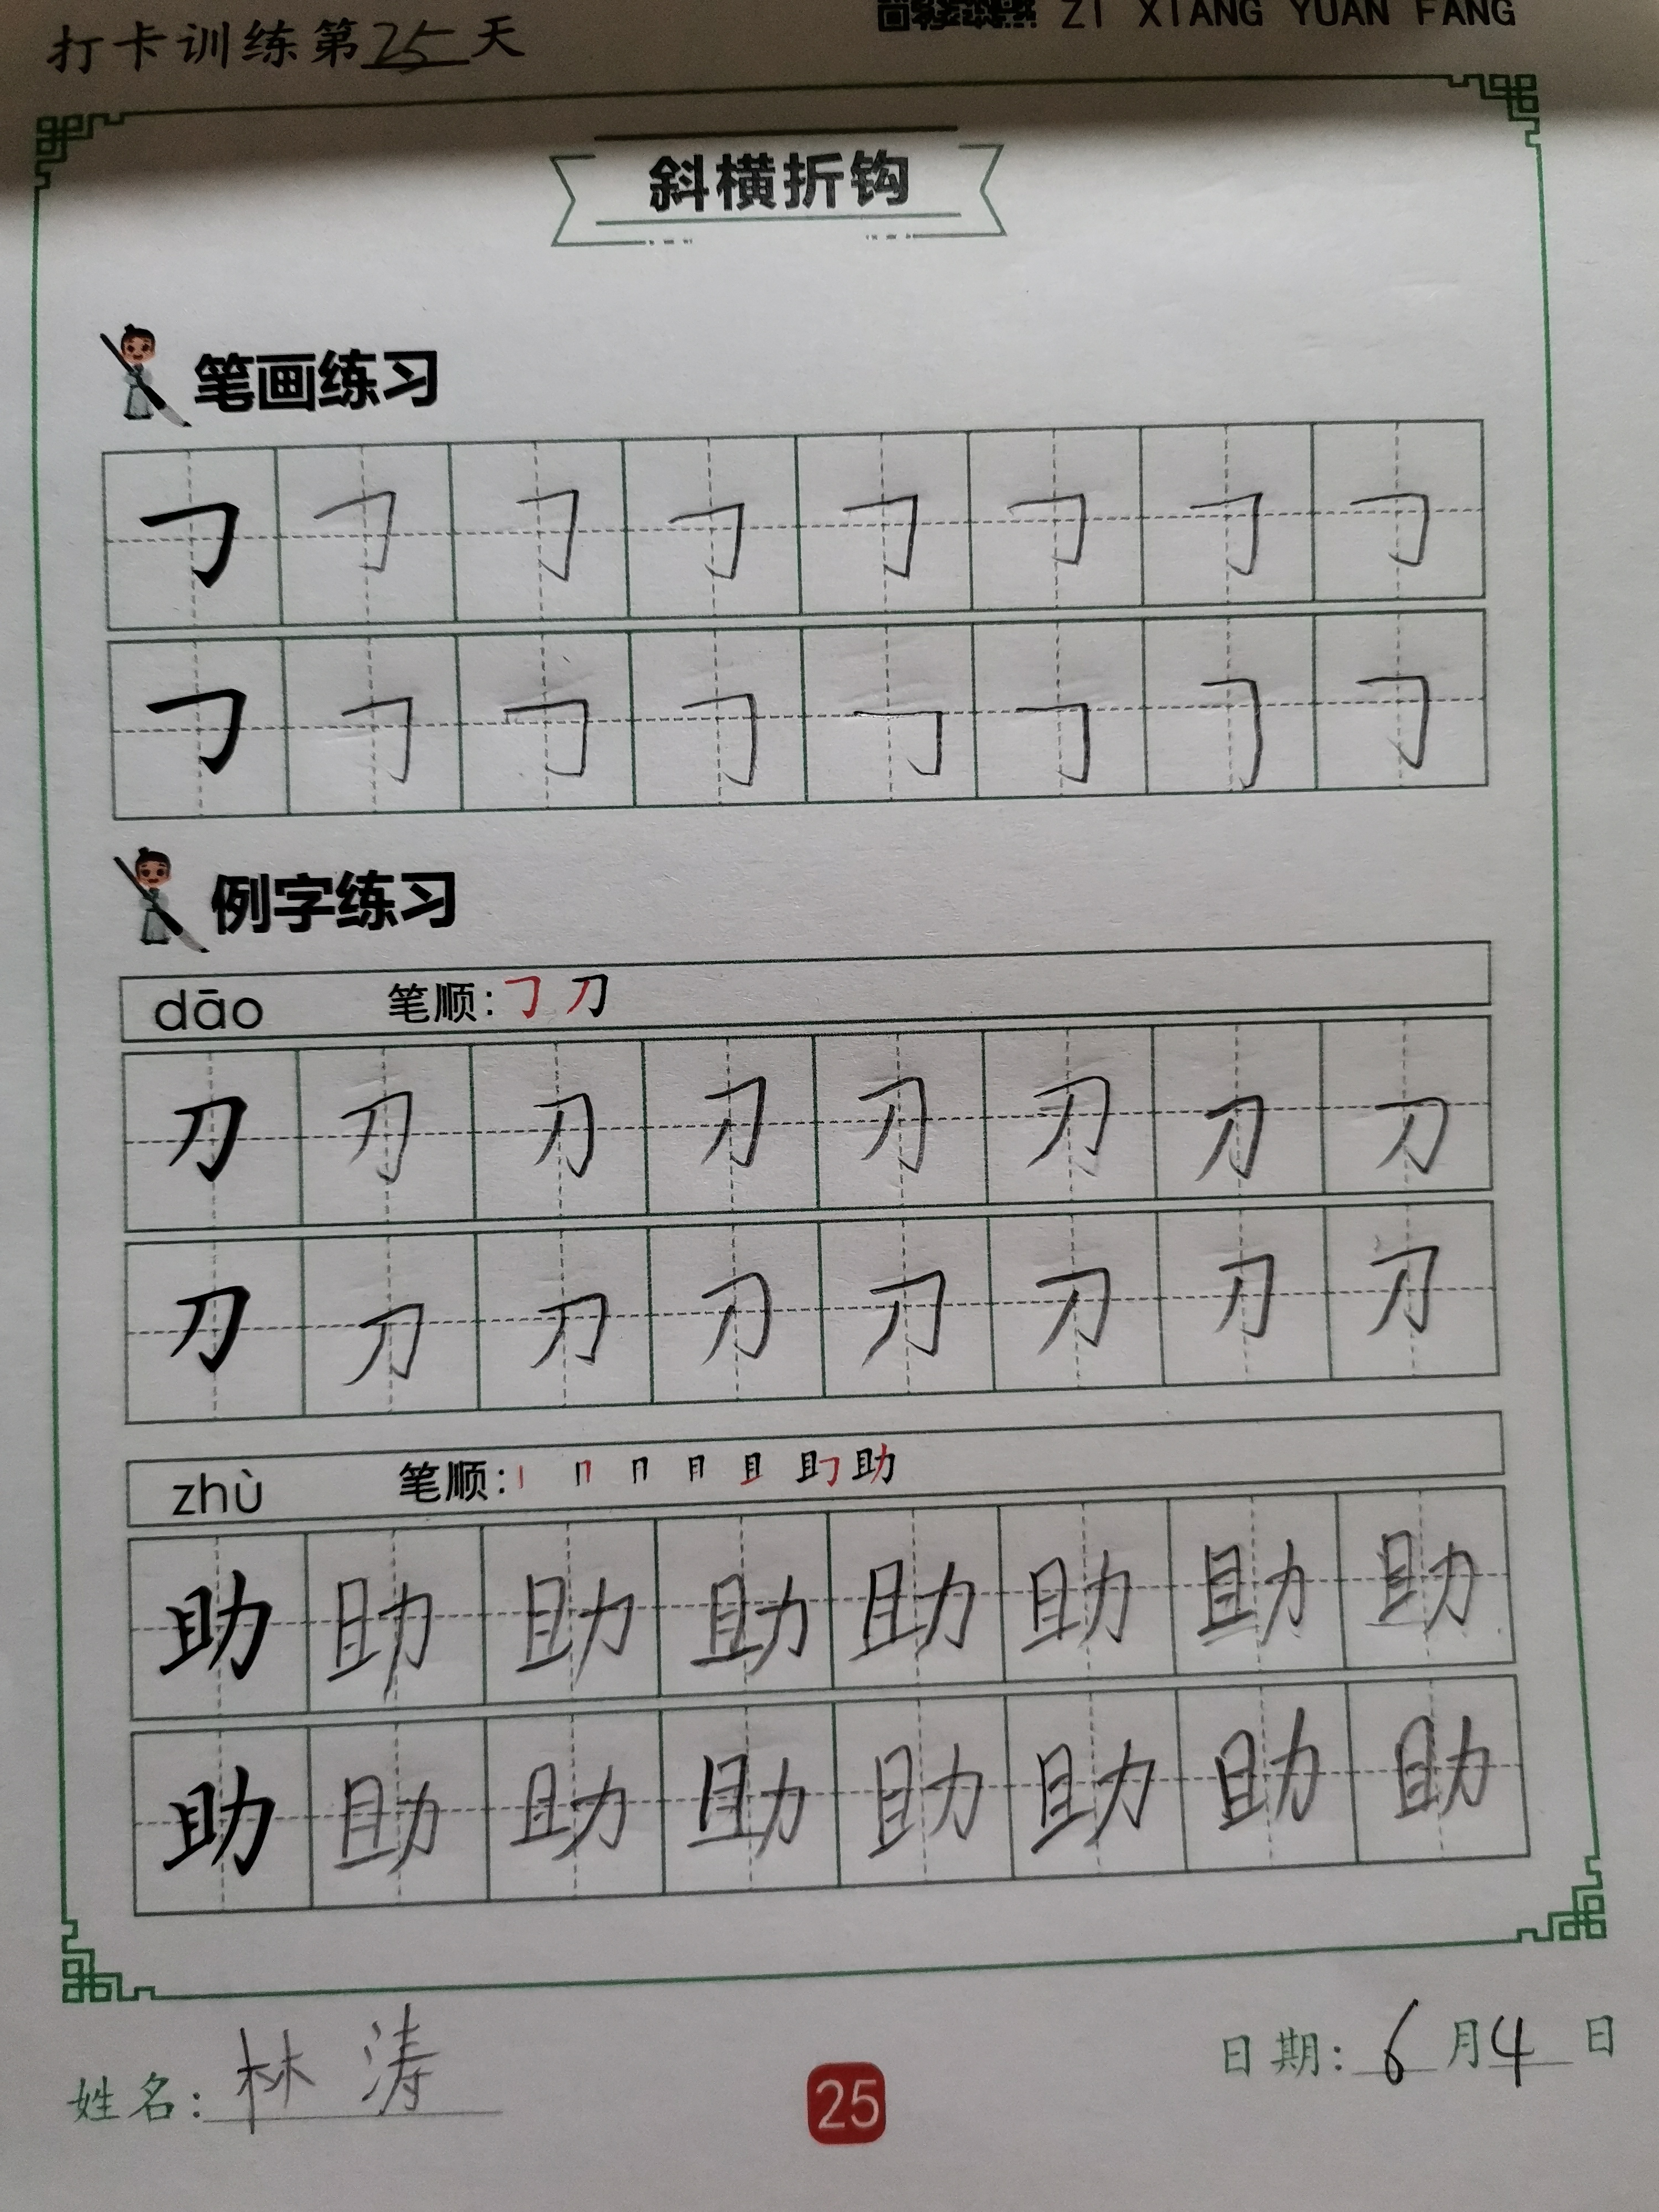 ZI XIANG YUAN FANG
打卡训练第25天
斜横折钩
笔画练习
例字练习
dāo 笔顺: 𠃌 刀
刀 刀 刀 刀 刀 刀 刀 刀
刀 刀 刀 刀 刀 刀 刀 刀
zhù 笔顺: 助
助 助 助 助 助 助 助 助
助 助 助 助 助 助 助 助
姓名: 林涛
日期: 6月4日
25